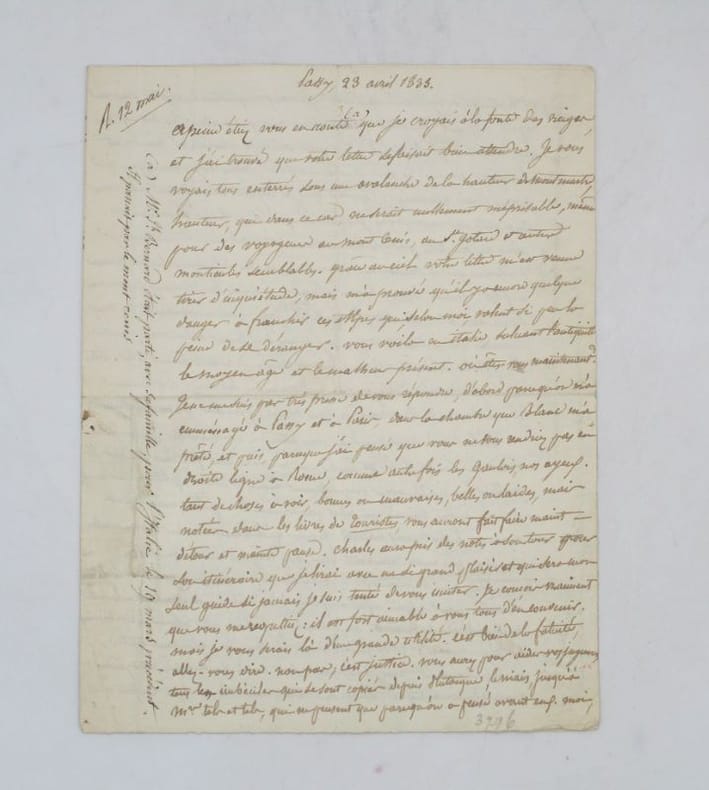 Passy, 23 avril 1833.
R. 12 mai.
à peine étiez vous en route (a) que je croyais à la fonte des neiges,
et j'ai trouvé que votre lettre se faisait bien attendre. Je vous
voyais tous enterrés sous une avalanche de la hauteur de Montmartre,
hauteur, qui dans ce cas ne serait nullement méprisable, même
pour des voyageurs au mont Cenis, au St. Gotard et autres
monticules semblables. grâce au ciel votre lettre m'est venue
tirer d'inquiétude, mais m'a prouvé qu'il y a encore quelque
danger à franchir ces Alpes qui selon moi, valent si peu la
peine de se déranger. vous voilà en italie saluant l'antiquité
le moyen âge et le malheur présent. où êtes vous maintenant?
Je ne me suis pas très pressé de vous répondre, d'abord parce qu'on m'a
emménagé à Passy et à Paris dans la chambre que Blanc m'a
prêté, et puis parce que j'ai pensé que vous ne vous rendriez pas en
droite ligne à Rome, comme autrefois les Gaulois nos ayeux.
tant de choses à voir, bonnes ou mauvaises, belles ou laides, mais
notées dans les livres de touristes, vous auront fait faire maint
détour et mainte pause. Charles aura pris des notes à son tour pour
son itinéraire que je lirai avec un si grand plaisir et qui sera mon
seul guide si jamais je suis tenté de vous imiter. Je conçois vraiment
que vous me regrettiez: il est fort aimable à vous tous d'en convenir,
mais je vous serais là d'une grande utilité. c'est bien de la fatuité,
allez-vous dire. non pas, c'est justice. vous avez pour aider vos jugemens
tous les imbéciles qui se sont copiés depuis Plutarque, jusqu'à
Mrs. tels et tels, qui ne pensent que parce qu'on a pensé avant eux. moi,
3796
(a) Mr. St. Bernard était parti, avec sa famille, pour l'Italie le 19 mars précédent.
Il passait par le mont cenis